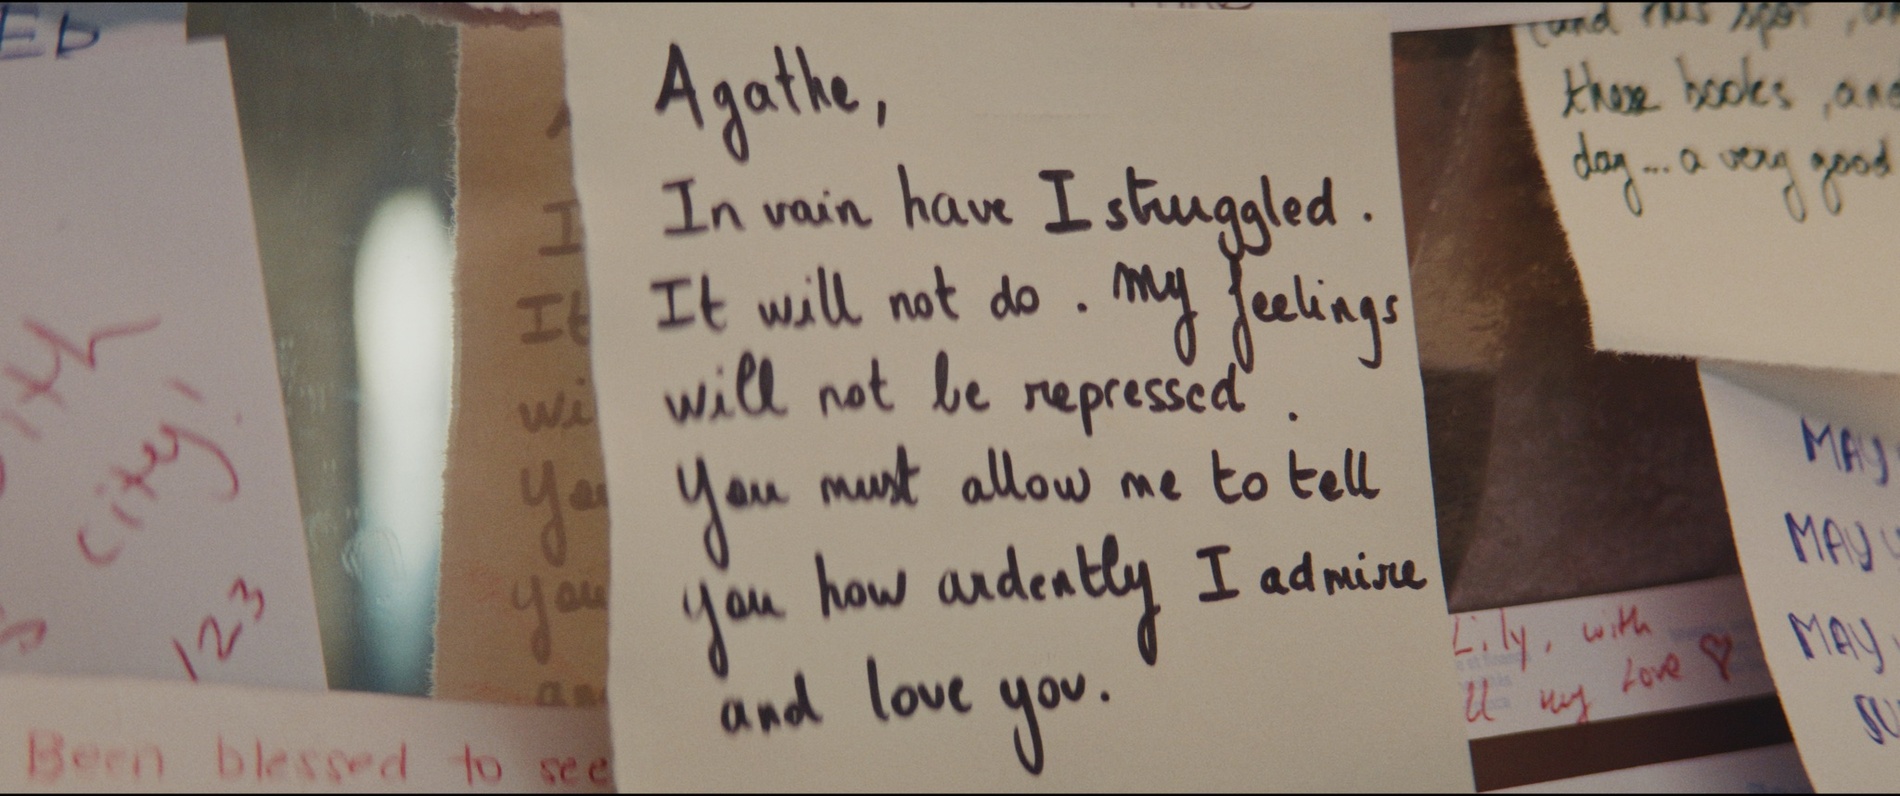 Agathe,
In vain have I struggled.
It will not do. My feelings
will not be repressed.
You must allow me to tell
you how ardently I admire
and love you.
these books, and
day... a very good
city!
123
Been blessed to see
Lily, with
my Love ♡
MAY
MAY
MAY